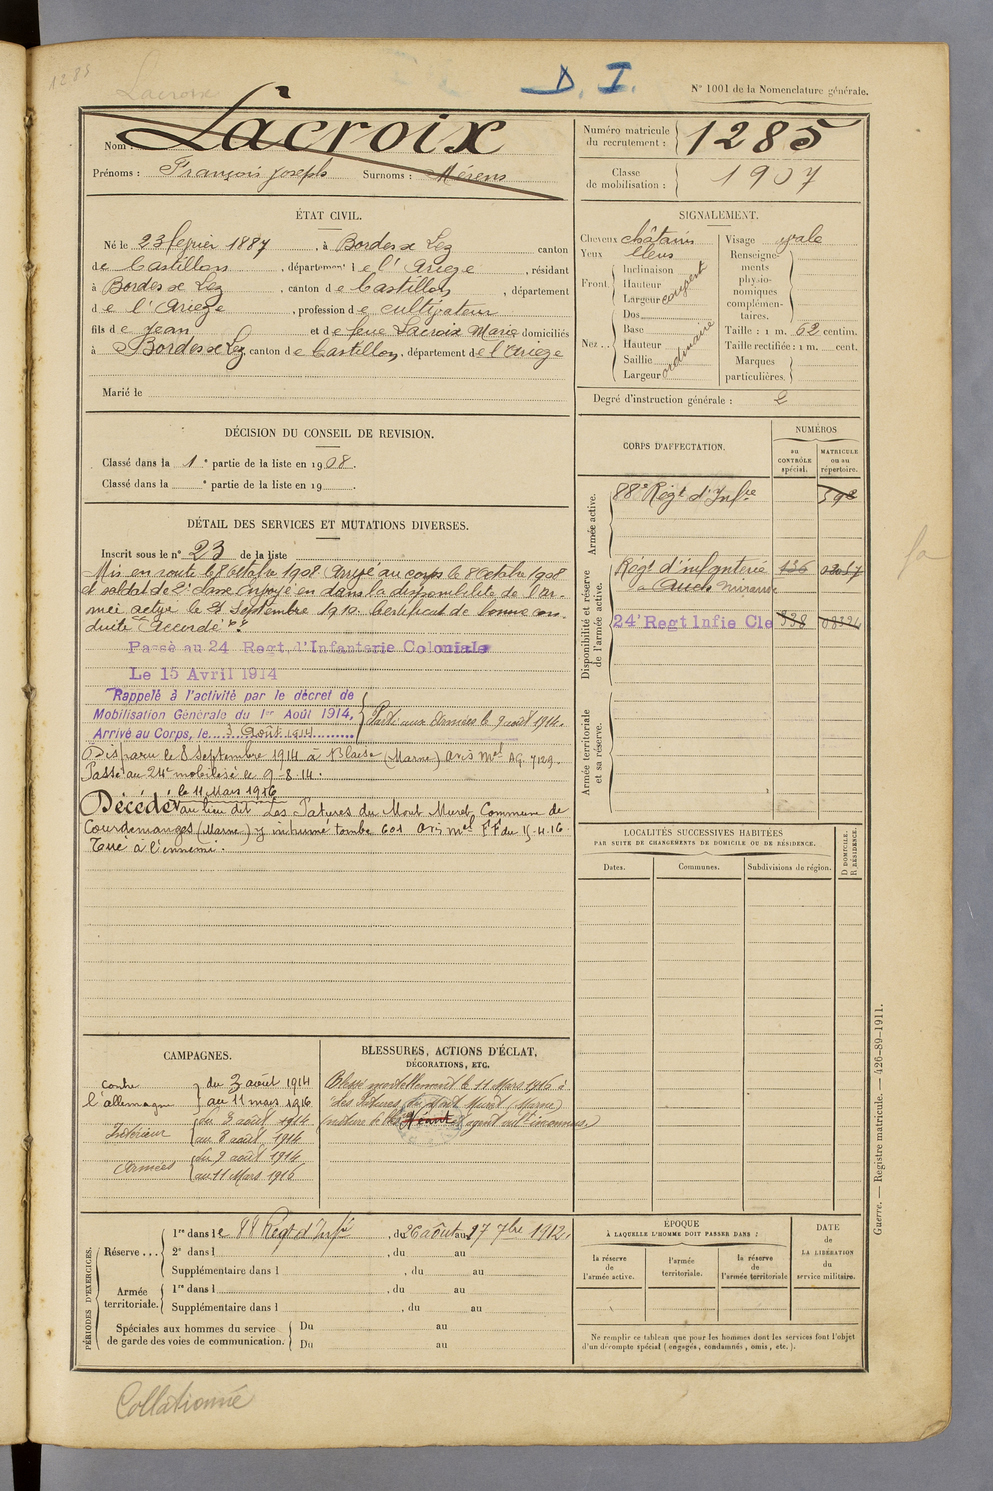 1285
Lacroix
D. I.
N° 1001 de la Nomenclature générale.
Nom : Lacroix
Prénoms : François Joseph Surnoms : Mérens
Numéro matricule du recrutement : 1285
Classe de mobilisation : 1907
ÉTAT CIVIL.
Né le 23 février 1887, à Bordes s Lez canton
de Castillon, département de l'Ariège, résidant
à Bordes s Lez, canton de Castillon, département
de l'Ariège, profession de cultivateur
fils de Jean et de feue Lacroix Marie domiciliés
à Bordes s Lez canton de Castillon, département de l'Ariège
Marié le
SIGNALEMENT.
Cheveux châtains
Yeux bleus
Front. Inclinaison
Hauteur
Largeur
Nez.. Dos
Base
Hauteur
Saillie
Largeur
ordinaire
Visage ovale
Renseignements physionomiques complémentaires.
Taille : 1 m. 62 centim.
Taille rectifiée : 1 m. cent.
Marques particulières.
Degré d'instruction générale : 2
DÉCISION DU CONSEIL DE REVISION.
Classé dans la 1e partie de la liste en 1908.
Classé dans la e partie de la liste en 19 .
CORPS D'AFFECTATION.
NUMÉROS
au CONTRÔLE spécial.
MATRICULE ou au répertoire.
Armée active.
88e Régt d'Infrie
Disponibilité et réserve de l'armée active.
Régt d'infanterie
Auch Mirande
24e Regt Infie Cle 338
Armée territoriale et sa réserve.
DÉTAIL DES SERVICES ET MUTATIONS DIVERSES.
Inscrit sous le n° 23 de la liste
Mis en route le 8 Octobre 1908 Arrivé au corps le 8 Octobre 1908
et soldat de 2e classe Envoyé en dans la disponibilité de l'ar-
mée active le Septembre 1910. Certificat de bonne con-
duite Accordé
Passé au 24 Regt. d'Infanterie Coloniale
Le 15 Avril 1914
Rappelé à l'activité par le décret de
Mobilisation Générale du 1er Août 1914,
Arrivé au Corps, le 3 Août 1914
Parti aux Armées le 9 août 1914.
Disparu le 8 Septembre 1914 à Blaise (Marne) avis mel AG. 7129.
Passé au 24e mobilisé le 9-8-14.
le 11 Mars 1916
Décédé au lieu dit Les Patures du Mont Muret, Commune de
Courdemanges (Marne) y inhumé tombe 601 avis mel FF du 15-4-16
Tué à l'ennemi.
LOCALITÉS SUCCESSIVES HABITÉES
PAR SUITE DE CHANGEMENTS DE DOMICILE OU DE RÉSIDENCE.
Dates.
Communes.
Subdivisions de région.
D DOMICILE, R RÉSIDENCE.
CAMPAGNES.
contre l'allemagne du 3 août 1914
au 11 mars 1916
Intérieur du 3 août 1914
au 8 août 1914
Armées du 9 août 1914
au 11 Mars 1916
BLESSURES, ACTIONS D'ÉCLAT,
DÉCORATIONS, ETC.
Blessé mortellement le 11 Mars 1916 à
les Patures du Mont Muret (Marne)
Néant
PÉRIODES D'EXERCICES.
Réserve... 1re dans le 88 Régt d'Infie, du 26 août au 17 7bre 1912.
2e dans l , du au
Supplémentaire dans l , du au
Armée territoriale. 1re dans l , du au
Supplémentaire dans l , du au
Spéciales aux hommes du service de garde des voies de communication. Du au
Du au
ÉPOQUE
À LAQUELLE L'HOMME DOIT PASSER DANS :
la réserve de l'armée active.
l'armée territoriale.
la réserve de l'armée territoriale
DATE de LA LIBÉRATION du service militaire.
Ne remplir ce tableau que pour les hommes dont les services font l'objet
d'un décompte spécial (engagés, condamnés, omis, etc.).
Guerre. — Registre matricule. — 426-89-1911.
Collationné